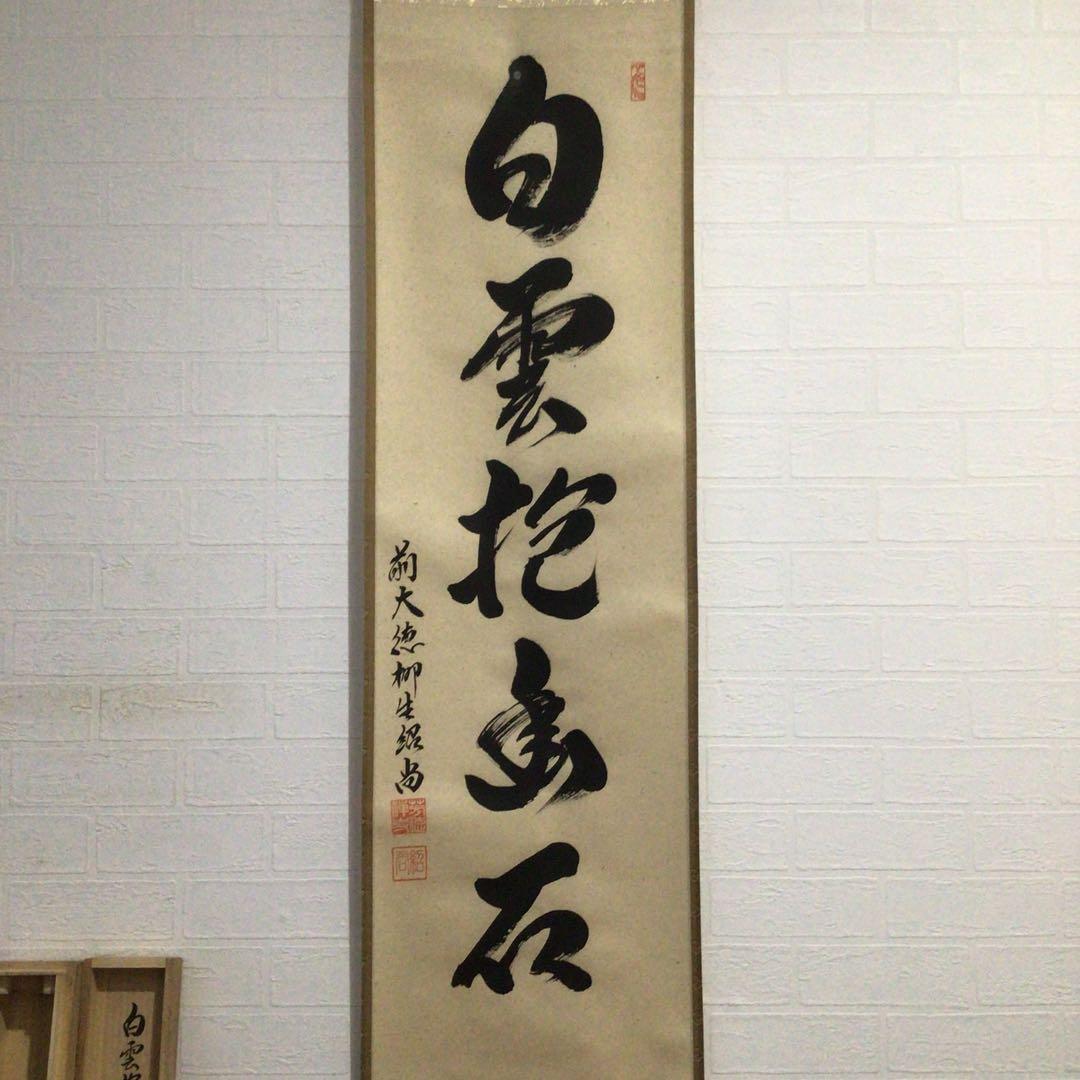 白雲抱幽石
前大徳柳生紹尚
白雲抱